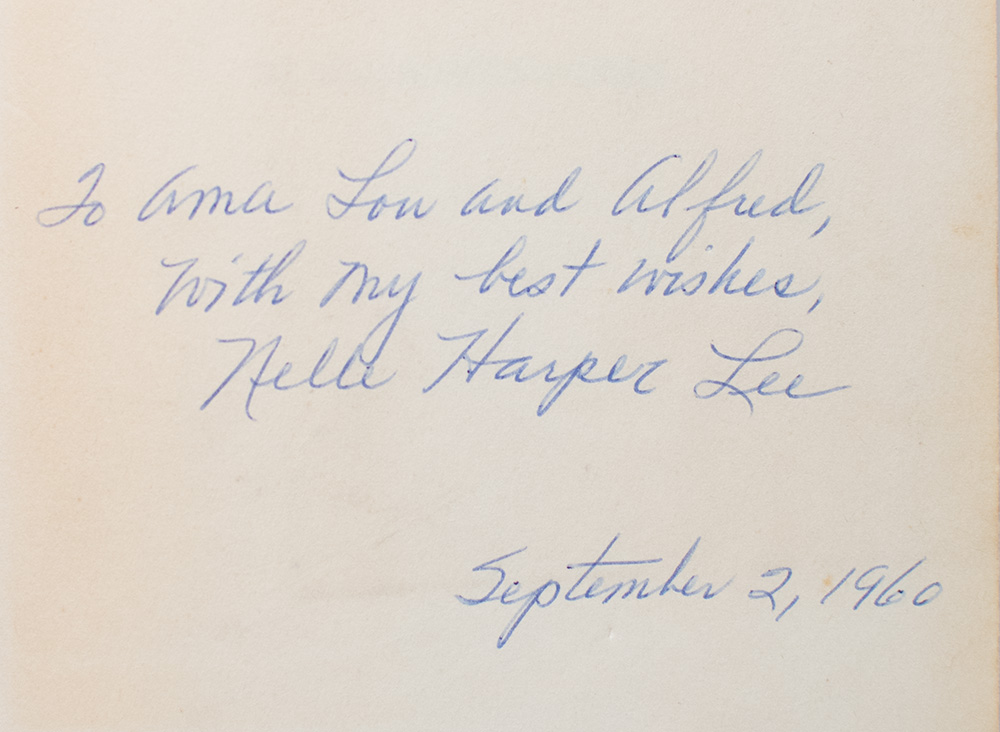 To Ama Lou and Alfred,
With my best wishes,
Nelle Harper Lee
September 2, 1960